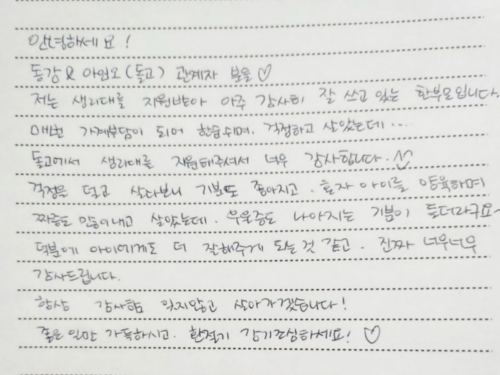 안녕하세요!
동강 & 아임오 (돌고) 관계자 분들♡
저는 생리대를 지원받아 아주 감사히 잘 쓰고 있는 한부모입니다.
매번 가계부담이 되어 한숨쉬며, 걱정하고 살았는데...
돌고에서 생리대를 지원해주셔서 너무 감사합니다.
걱정을 덜고 살다보니 기분도 좋아지고, 혼자 아이를 양육하며
짜증도 많이내고 살았는데. 우울증도 나아지는 기분이 들더라구요~
덕분에 아이에게도 더 잘해주게 되는것 같고. 진짜 너무너무
감사드립니다.
항상 감사함 잊지않고 살아가겠습니다!
좋은 일만 가득하시고. 환절기 감기조심하세요! ♡